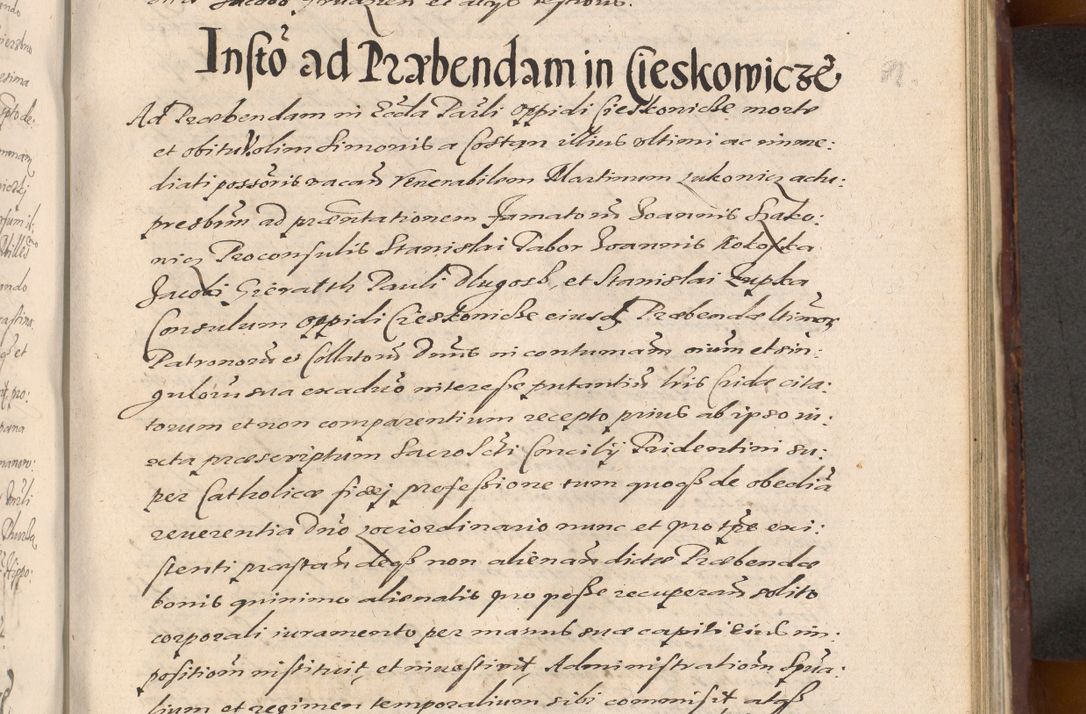 Insto ad Præbendam in Cieskowicze
Ad Præbendam in Eccla Parli oppidi Cieskoniche morte
et obitu olim Simonis a Costan illius ultimi ac imme:
diati possoris vacan Venerabilem Martinum Lukonicz actu:
presbrm ad præntationem famatorum Joannis Szako:
nicz Proconsulis Stanislai Tabor Joannis Kokoszka
Jacobi Gieralth Pauli Dlugosz, et Stanislai Zupka
Consulum oppidi Cieskoniche eiusd Præbendæ ltimor
Patronorum et Collatorum Dnus in contumam oium et sin:
gulorum sua exadurso interesse putantium lris Cridæ cita:
torum et non comparentium recepto prius ab ipso iu:
xta præscriptum Sacroscti Concilij Tridentini su:
per Catholicæ fidej professione tum quoqs de obedia
reverentia Dno lociordinario nunc et pro tpe exi:
stenti præstan deqs non alienan dictæ Præbendæ
bonis quinimo alienatis pro posse recuperan solito
corporali iuramento per manus suæ capiti eius im:
position instituit, et investivit, Administrationem Spua:
lium et regimen temporalium sibi commisit atqs